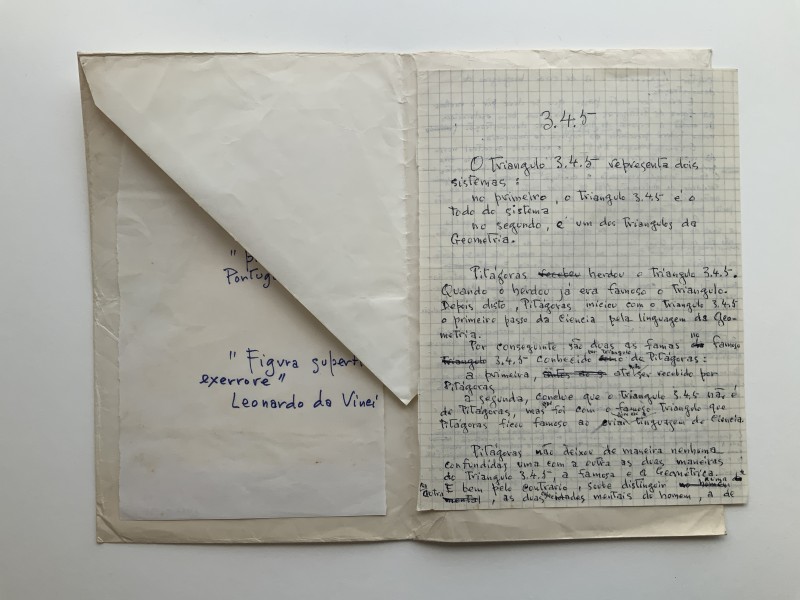 "
Portug
"Figura superf
exerrore"
Leonardo da Vinci
3.4.5
O Triangulo 3.4.5 representa dois
sistemas:
no primeiro, o Triangulo 3.4.5 é o
Todo do sistema
no segundo, é um dos Triangulos da
Geometria.
Pitágoras recebeu herdou o Triangulo 3.4.5.
Quando o herdou já era famoso o Triangulo.
Depois disto, Pitágoras iniciou com o Triangulo 3.4.5
o primeiro passo da Ciencia pela linguagem da Geo-
metria.
Por conseguinte são duas as famas no famoso
Triangulo 3.4.5 conhecido por triangulo de Pitágoras:
a primeira, até ser recebido por
Pitágoras
a segunda, conclue que o Triangulo 3.4.5 não é
de Pitágoras, mas foi com o famoso Triangulo que
Pitágoras ficou famoso ao criar linguagem de Ciencia.
Pitágoras não deixou de maneira nenhuma
confundidas uma com a outra as duas maneiras
do Triangulo 3.4.5, a famosa e a Geométrica.
E bem pelo contrario, soube distinguir
outra mental, as duas idades mentais do homem, a de